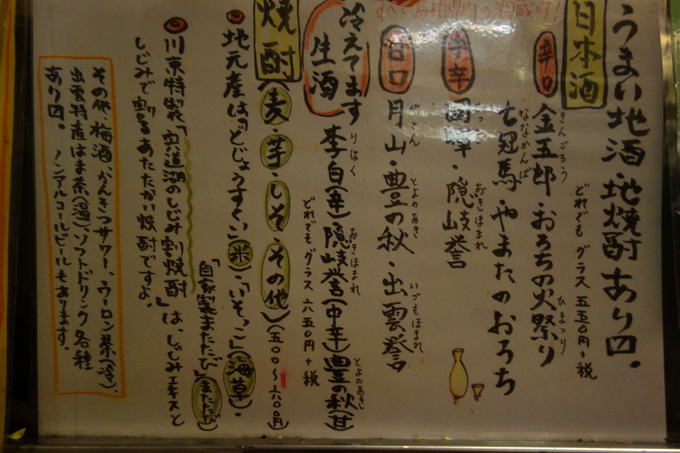 うまい地酒・地焼酎あり〼。
すべて島根県内の酒蔵り!
日本酒
どれでも グラス 五五〇円+税
辛口 金五郎・おろちの火祭り
きんごろう
ひまつり
七冠馬・やまたのおろち
ななかんば
中辛 國暉・隠岐誉
おきほまれ
甘口 月山・豊の秋・出雲誉
がっさん
とよのあき
いづもほまれ
冷えてます どれでも グラス 六五〇円+税
生酒 李白(辛)隠岐誉(中辛)豊の秋(甘)
りはく
おきほまれ
とよのあき
焼酎(麦・芋・しそ・その他)(五〇〇~六〇〇円)
◎地元産は「どじょうすくい」(米)・「いそっこ」(海草)・
「自家製またたび」(またたび)
◎川京特製「宍道湖のしじみ割焼酎」は、しじみエキスと
しじみで割るあたたかい焼酎ですよ。
その他・梅酒、かんきつサワー、ウーロン茶(冷)、
出雲特産はま茶(温)、ソフトドリンク各種
あり〼。 ノンアルコールビールもあります。